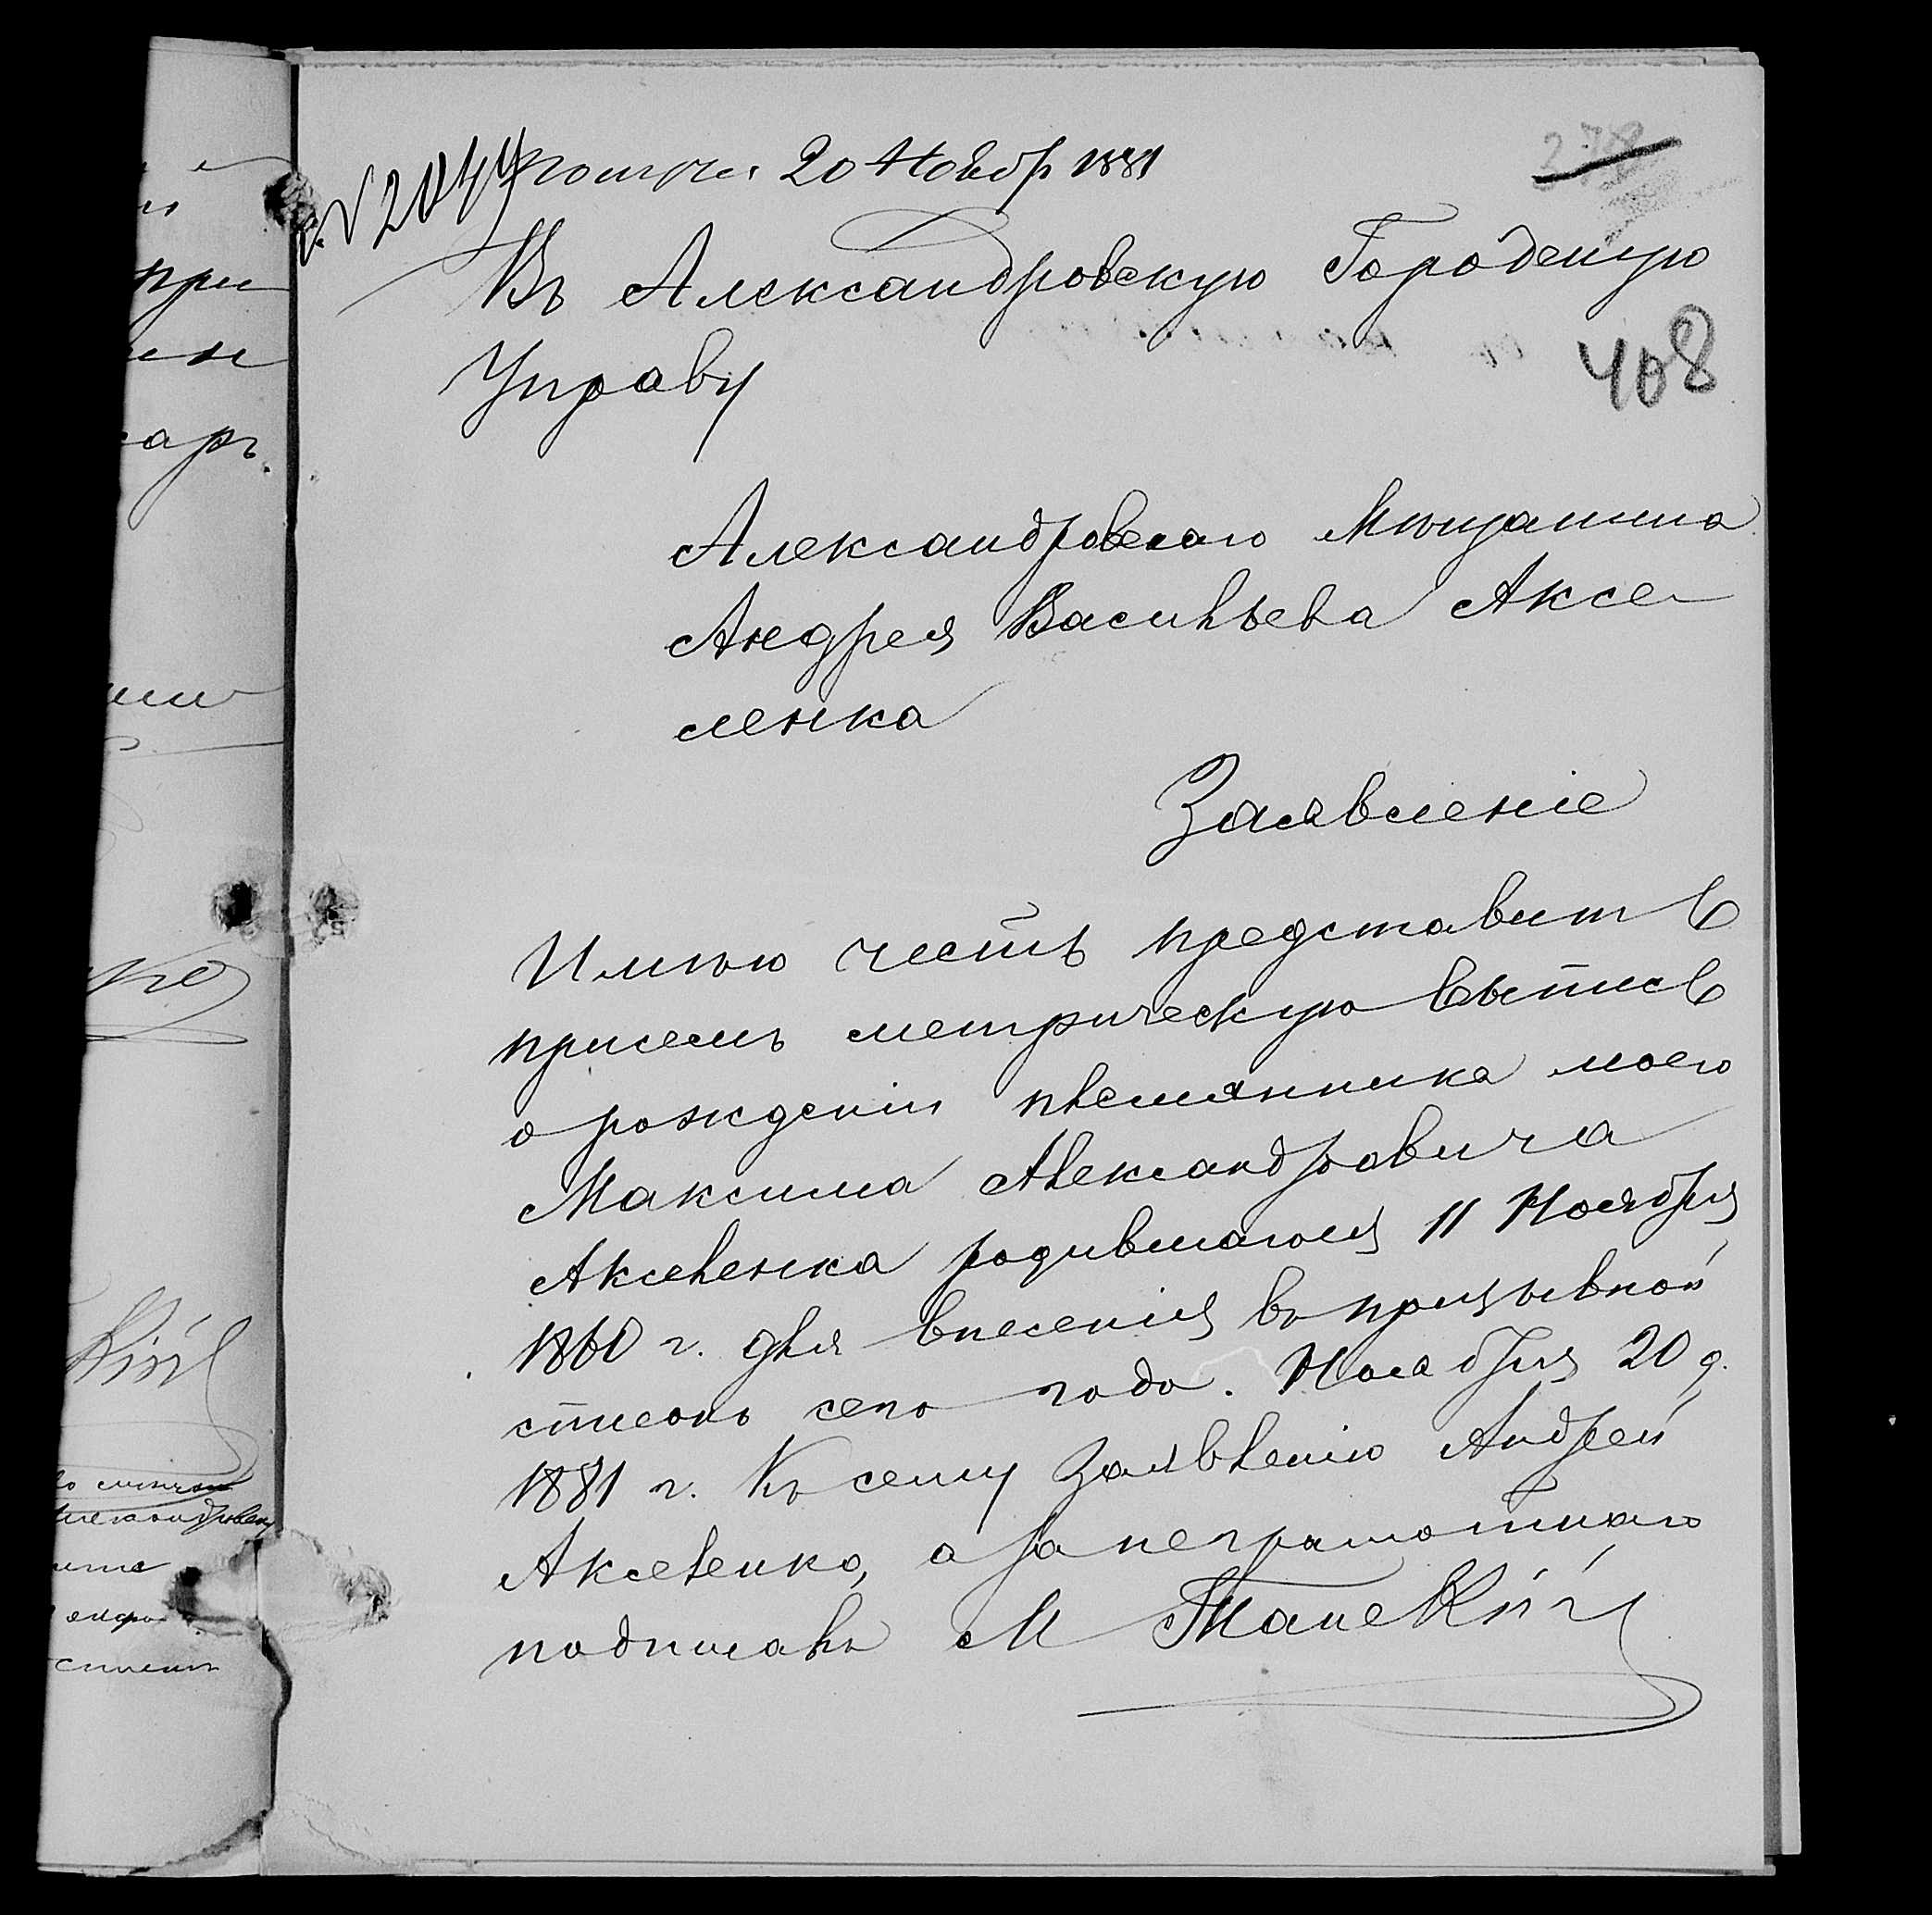 № 2044 Получ. 20 Ноябр 1881
278
Въ Александровскую Городскую
408
Управу
Александровскаго Мѣщанина
Андрея Васильева Аксе-
ленка
Заявленіе
Имѣю честь представить
присемъ метрическую выпись
о рожденіи племянника моего
Максима Александровича
Акселенка родившагося 11 Ноября
1860 г. для внесенія въ призывной
списокъ сего года. Ноября 20 д.
1881 г. Къ сему заявленію Андрей
Акселенко, а за неграмотнаго
подписалъ М
при
аръ.